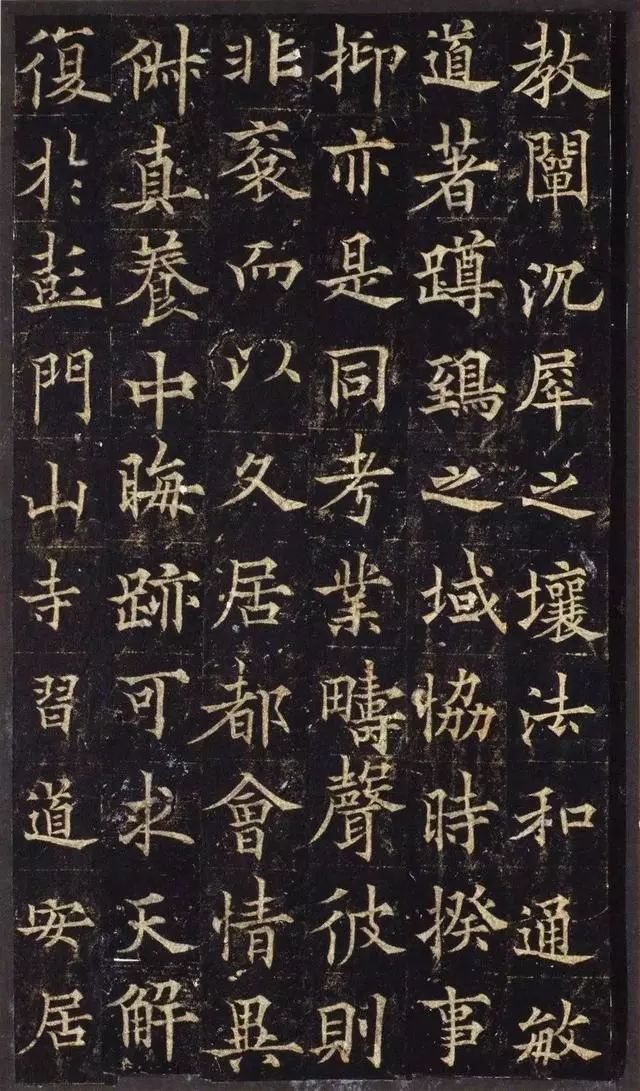 教闡沉犀之壤法和通敏
道著蹲鵄之域協時揆事
抑亦是同考業疇聲彼則
非衮而以久居都會情異
倂真養中晦跡可求天解
復於彭門山寺習道安居